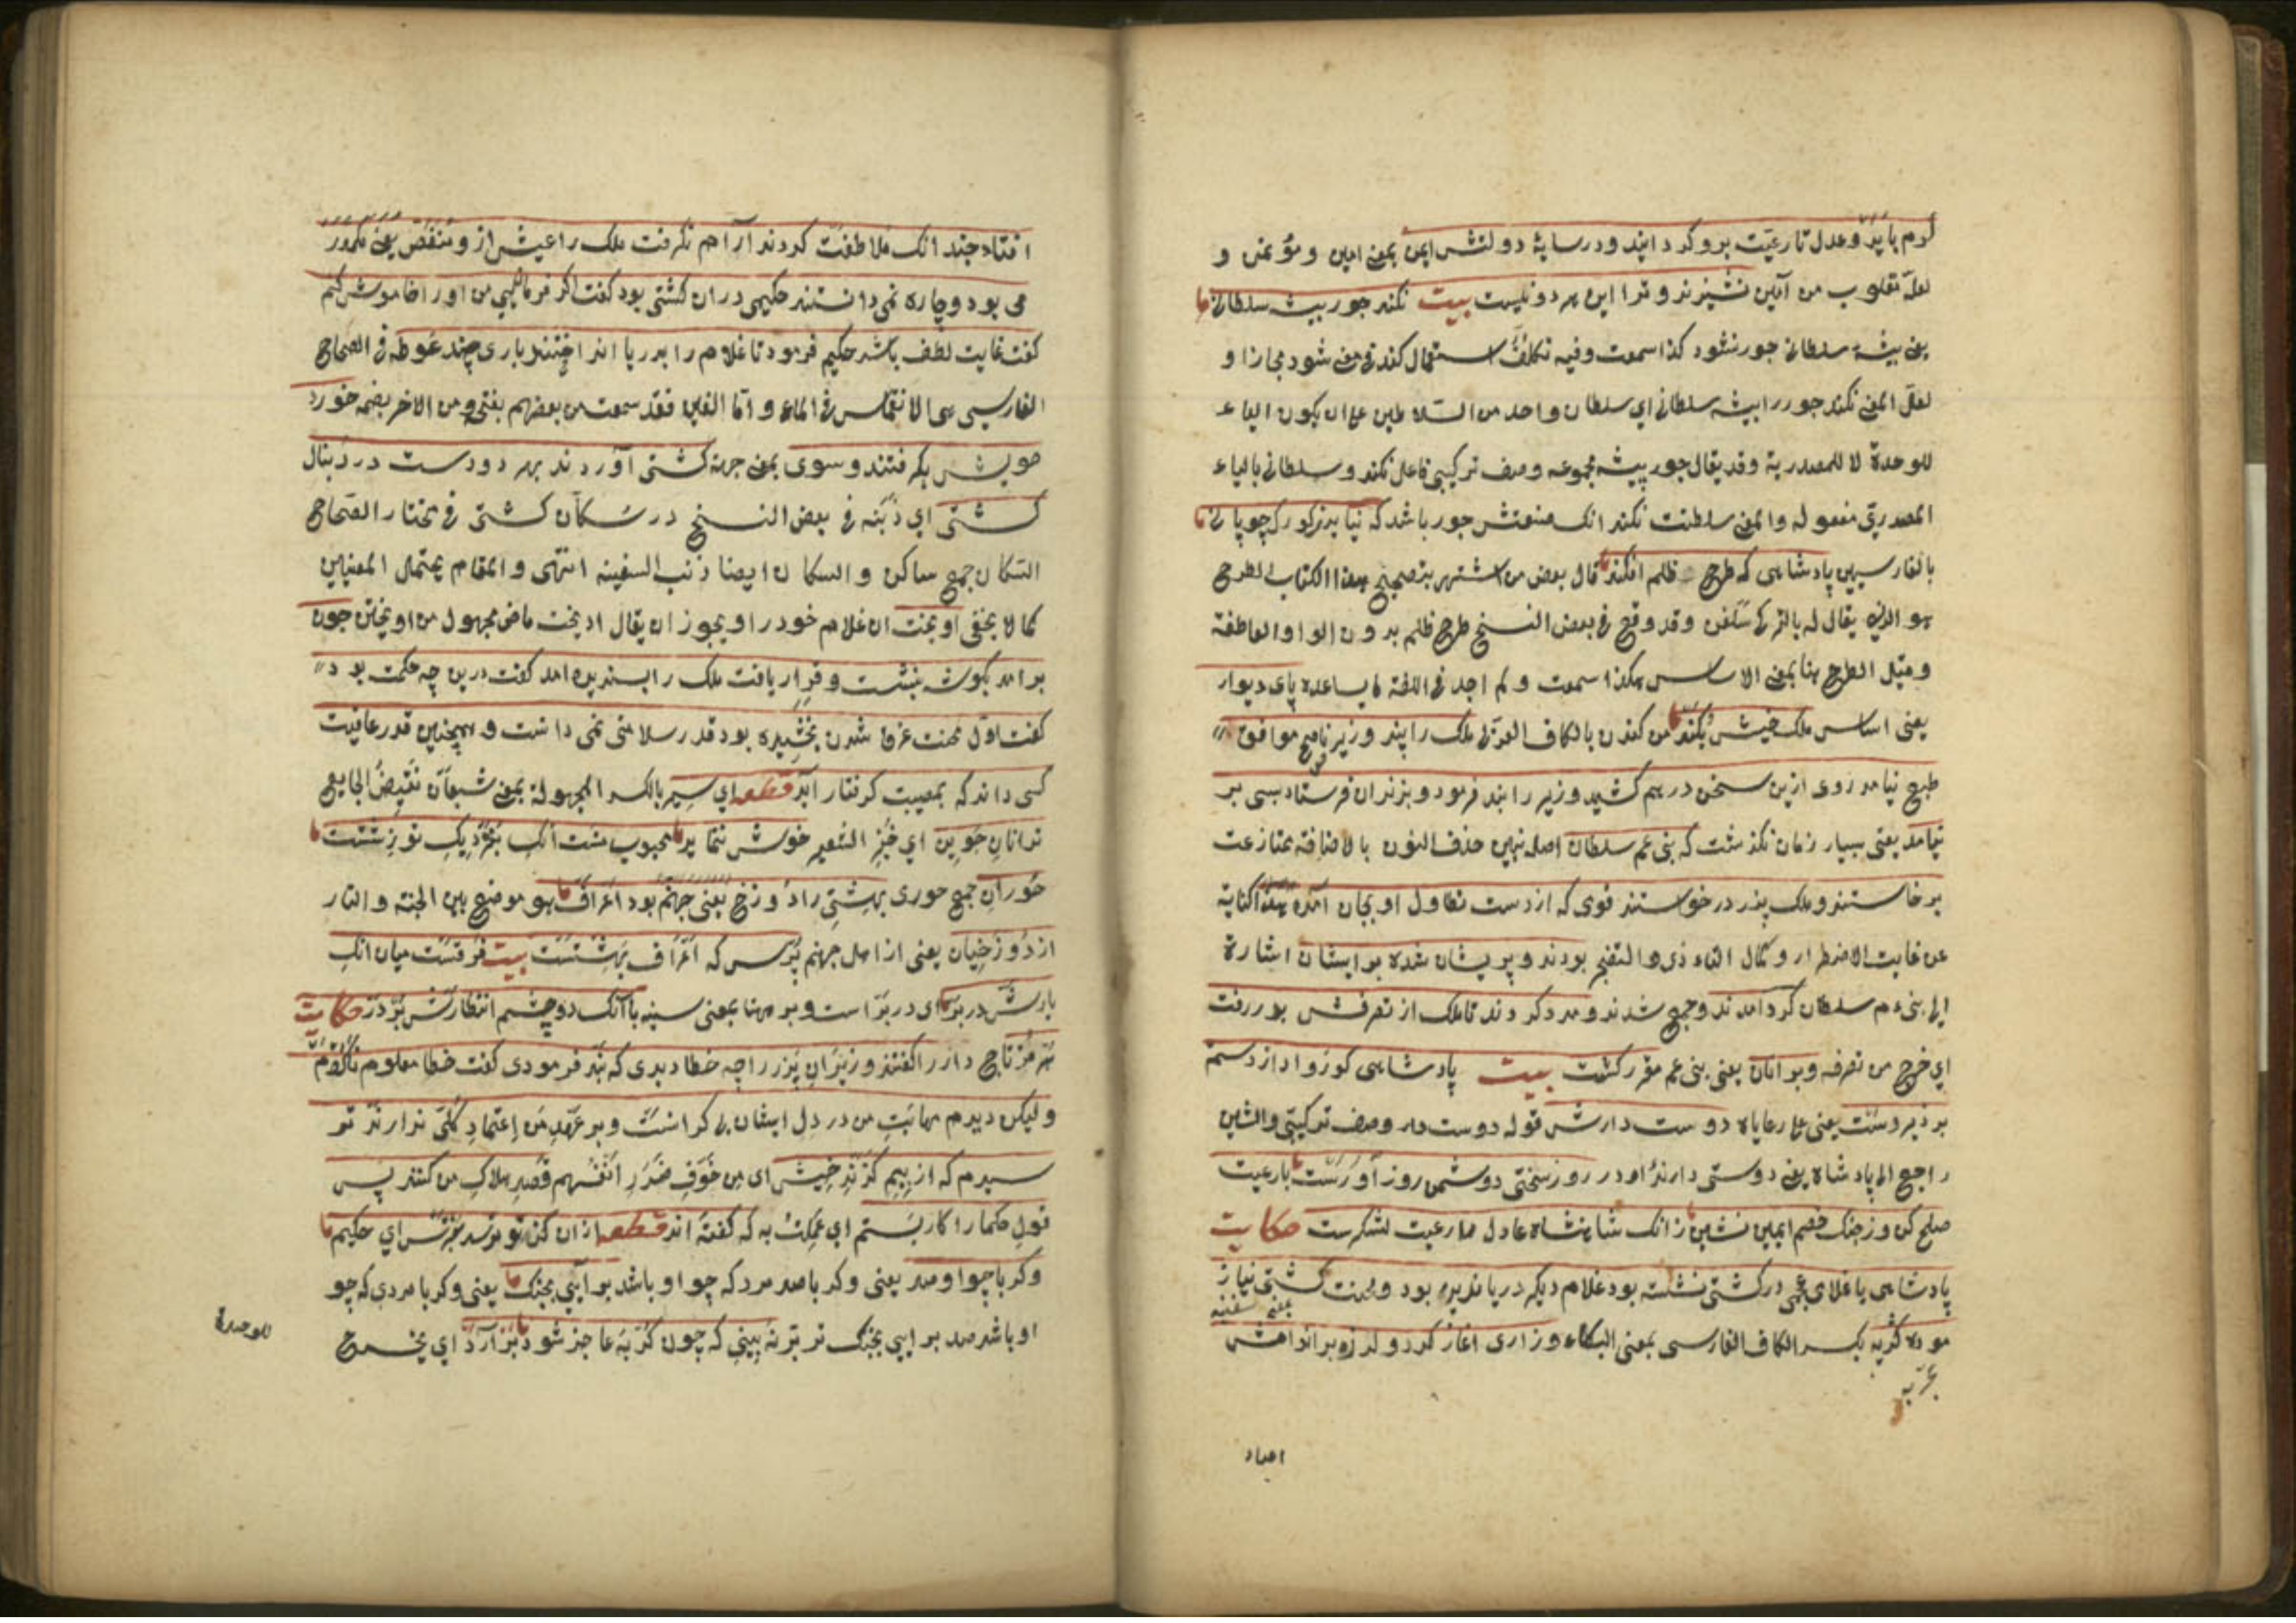 کرم باید و عدل تا رعیت برو کرد ایند و در سایهٔ دولتش ایمن بمعنی امین و مؤتمن و
لعله مقلوب من آمین نشینند و ترا این هر دو نیست بیت نکند جور پیشه سلطانی
یعنی پیشهٔ سلطانی جور نشود کذا سمعت وفیه تکلف استعمال کند فی معنی شود مجازا و
لعل المعنی نکند جور را پیشه سلطانی ای سلطان واحد من السلاطین علی ان یکون الیاء
للوحدة لا للمصدریة وقد یقال جور پیشه مجموعه وصف ترکیبی فاعل نکند وسلطانی بالیاء
المصدری مفعوله والمعنی سلطنت نکند انک صنعتش جور باشد که نیاید ز کرک چوپانی
بالفارسیین پادشاهی که طرح ظلم افکند قال بعض من اشتهر بتصحیح هذا الکتاب الطرح
هو الذی یقال له بالترکی سلغن وقد وقع فی بعض النسخ طرح ظلم بدون الواو العاطفة
وقیل الطرح هنا بمعنی الاساس هکذا سمعت ولم اجد فی اللغة ما یساعده پای دیوار
یعنی اساس ملک خیش بکند من کندن بالکاف العربی ملک را پند وزیر ناصح موافق
طبع نیامد روی ازین سخن درهم کشید وزیر را بند فرمود و بزندان فرستاد بسی بر
نیامد یعنی بسیار زمان نکذشت که بنی عم سلطان اصله بنین حذف النون بالاضافة بمنازعت
برخاستند وملک پدر درخواستند قومی که از دست تطاول او بجان آمده هذا کنایة
عن غایت الاضطرار وکمال التأذی والتضجر بودند وپریشان شده بو ایشان اشارة
الی بنی عم سلطان کرد آمدند وجمع شدند ومدد کردند تا ملک از تصرفش بدر رفت
ای خرج من تصرفه وبر آنان یعنی بنی عم مقرر کشت بیت پادشاهی کو روا دارد ستم
بر زیر دست یعنی علی رعایاه دوست دارش قوله دوست دار وصف ترکیبی والشین
راجع الی پادشاه یعنی دوستی دارند او در روز سختی دوشمن زور آورست با رعیت
صلح کن وز جنک خصم ایمن نشین زانک شاهنشاه عادل را رعیت لشکرست حکایت
پادشاهی با غلامی عجمی در کشتی نشسته بود غلام دیکر دریا ندیده بود ومحنت کشتی نیاز
یعنی سفینه
موده کریه بکسر الکاف الفارسی بمعنی البکاء وزاری آغاز کرد ولرزه بر اندامش
افتاد چند انک ملاطفت کردند آرام نکرفت ملک را عیش ازو منغص یعنی مکدر
می بود وچاره نمی دانستند حکیمی دران کشتی بود کفت اکر فرمایی من او را خاموش کنم
کفت غایت لطف باشد حکیم فرمود تا غلام را بدریا انداختند باری چند غوطه فی الصحاح
الفارسی هی الانغماس فی الماء واما الغین فقد سمعت من بعضهم بفتحه ومن الاخر بضمه خورد
مویش بکرفتند وسوی بمعنی جهة کشتی آوردند بهر دو دست در دنبال
کشتی ای ذنبه فی بعض النسخ در سکان کشتی فی مختار الصحاح
السکان جمع ساکن والسکان ایضا ذنب السفینة انتهی والمقام یحتمل المعنیین
کما لا یخفی آویخت ان غلام خود را ویجوز ان یقال آویخت ماض مجهول من آویختن چون
بر آمد بکوشه بنشست وقرار یافت ملک را پسندیده آمد کفت درین چه حکمت بود
کفت اول محنت غرق شدن نچشیده بود قدر سلامتی نمی دانست وهمچنین قدر عافیت
کسی داند که بمصیبت کرفتار آید قطعه ای سیر بالکسر المجهولة بمعنی شبعان نقیض الجایع
ترا نان جوین ای خبز الشعیر خوش ننماید محبوب منست انک بنزدیک تو زشتست
حوران جمع حوری بهشتی را دوزخ یعنی جهنم بود اعراف هو موضع بین الجنة والنار
از دوزخیان یعنی از اهل جهنم پرس که اعراف بهشتست بیت فرقست میان انک
یارش در بر ای در بر است وبر ههنا بمعنی سینه با آنک دو چشم انتظارش بر در حکایت
هرمز تاجدار را کفتند وزیران پدر را چه خطا دیدی که بند فرمودی کفت خطا معلوم نکردم
ولیکن دیدم مهابت من در دل ایشان بی کرانست وبر عهد من اعتماد کلی ندارند تر
سیدم که از بیم کزند خیش ای من خوف ضرر انفسهم قصد هلاک من کنند پس
قول حکما را کار بستم ای عملت به که کفته اند قطعه ازان کز تو ترسد بترس ای حکیم
وکر با چو او صد یعنی وکر با صد مرد که چو او باشد بر آیی بجنک یعنی وکر با مردی که چو
او باشد صد بر ایی بجنک تربتر نه بینی که چون کربه عاجز شود بر آرد ای یخرج